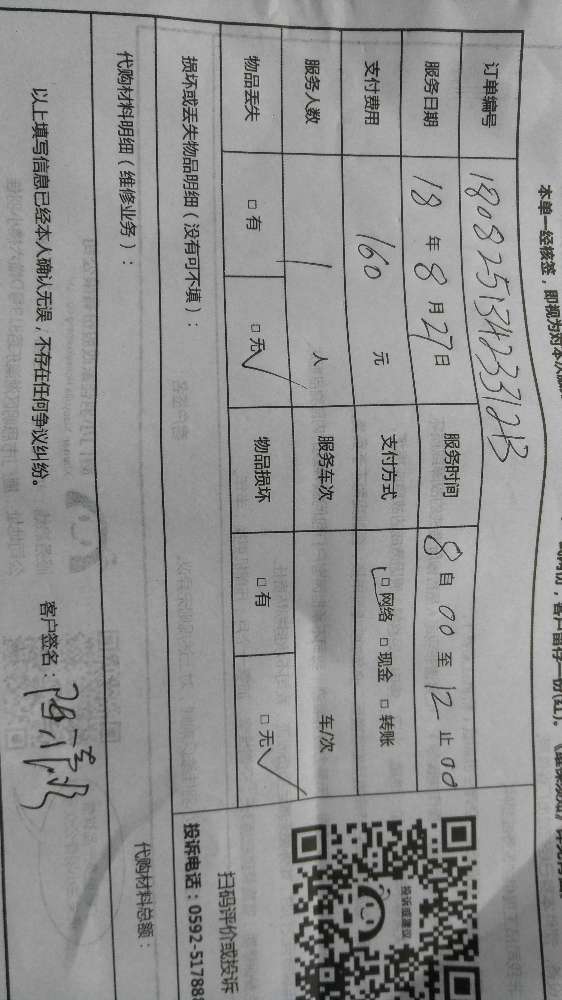 本单一经核签，即视为对本次服
客户留存一份(红)。
订单编号 180825134233123
服务日期 18 年 8 月 27 日 服务时间 8 自 00 至 12 止 00
支付费用 160 元 支付方式 □ 网络 □ 现金 □ 转账
服务人数 1 人 服务车次 车/次
物品丢失 □ 有 □ 无 物品损坏 □ 有 □ 无
损坏或丢失物品明细（没有可不填）：
代购材料明细（维修业务）：
代购材料总额：
以上填写信息已经本人确认无误，不存在任何争议纠纷。
客户签名：
投诉或建议
扫码评价或投诉
投诉电话：0592-517888